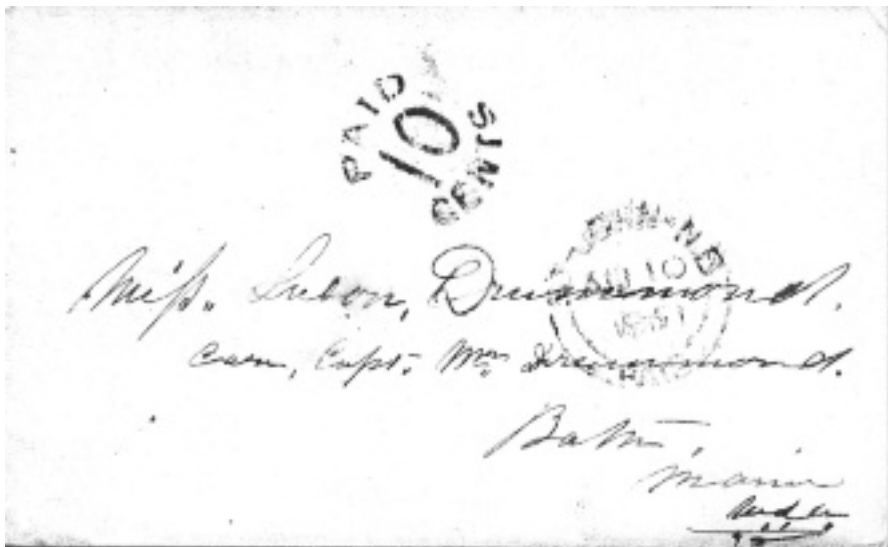 PAID 10 CENTS
JOHN · N.B
AU 10
Miss. Drummond.
Care, Capt. Wm Drummond.
Bath,
Maine